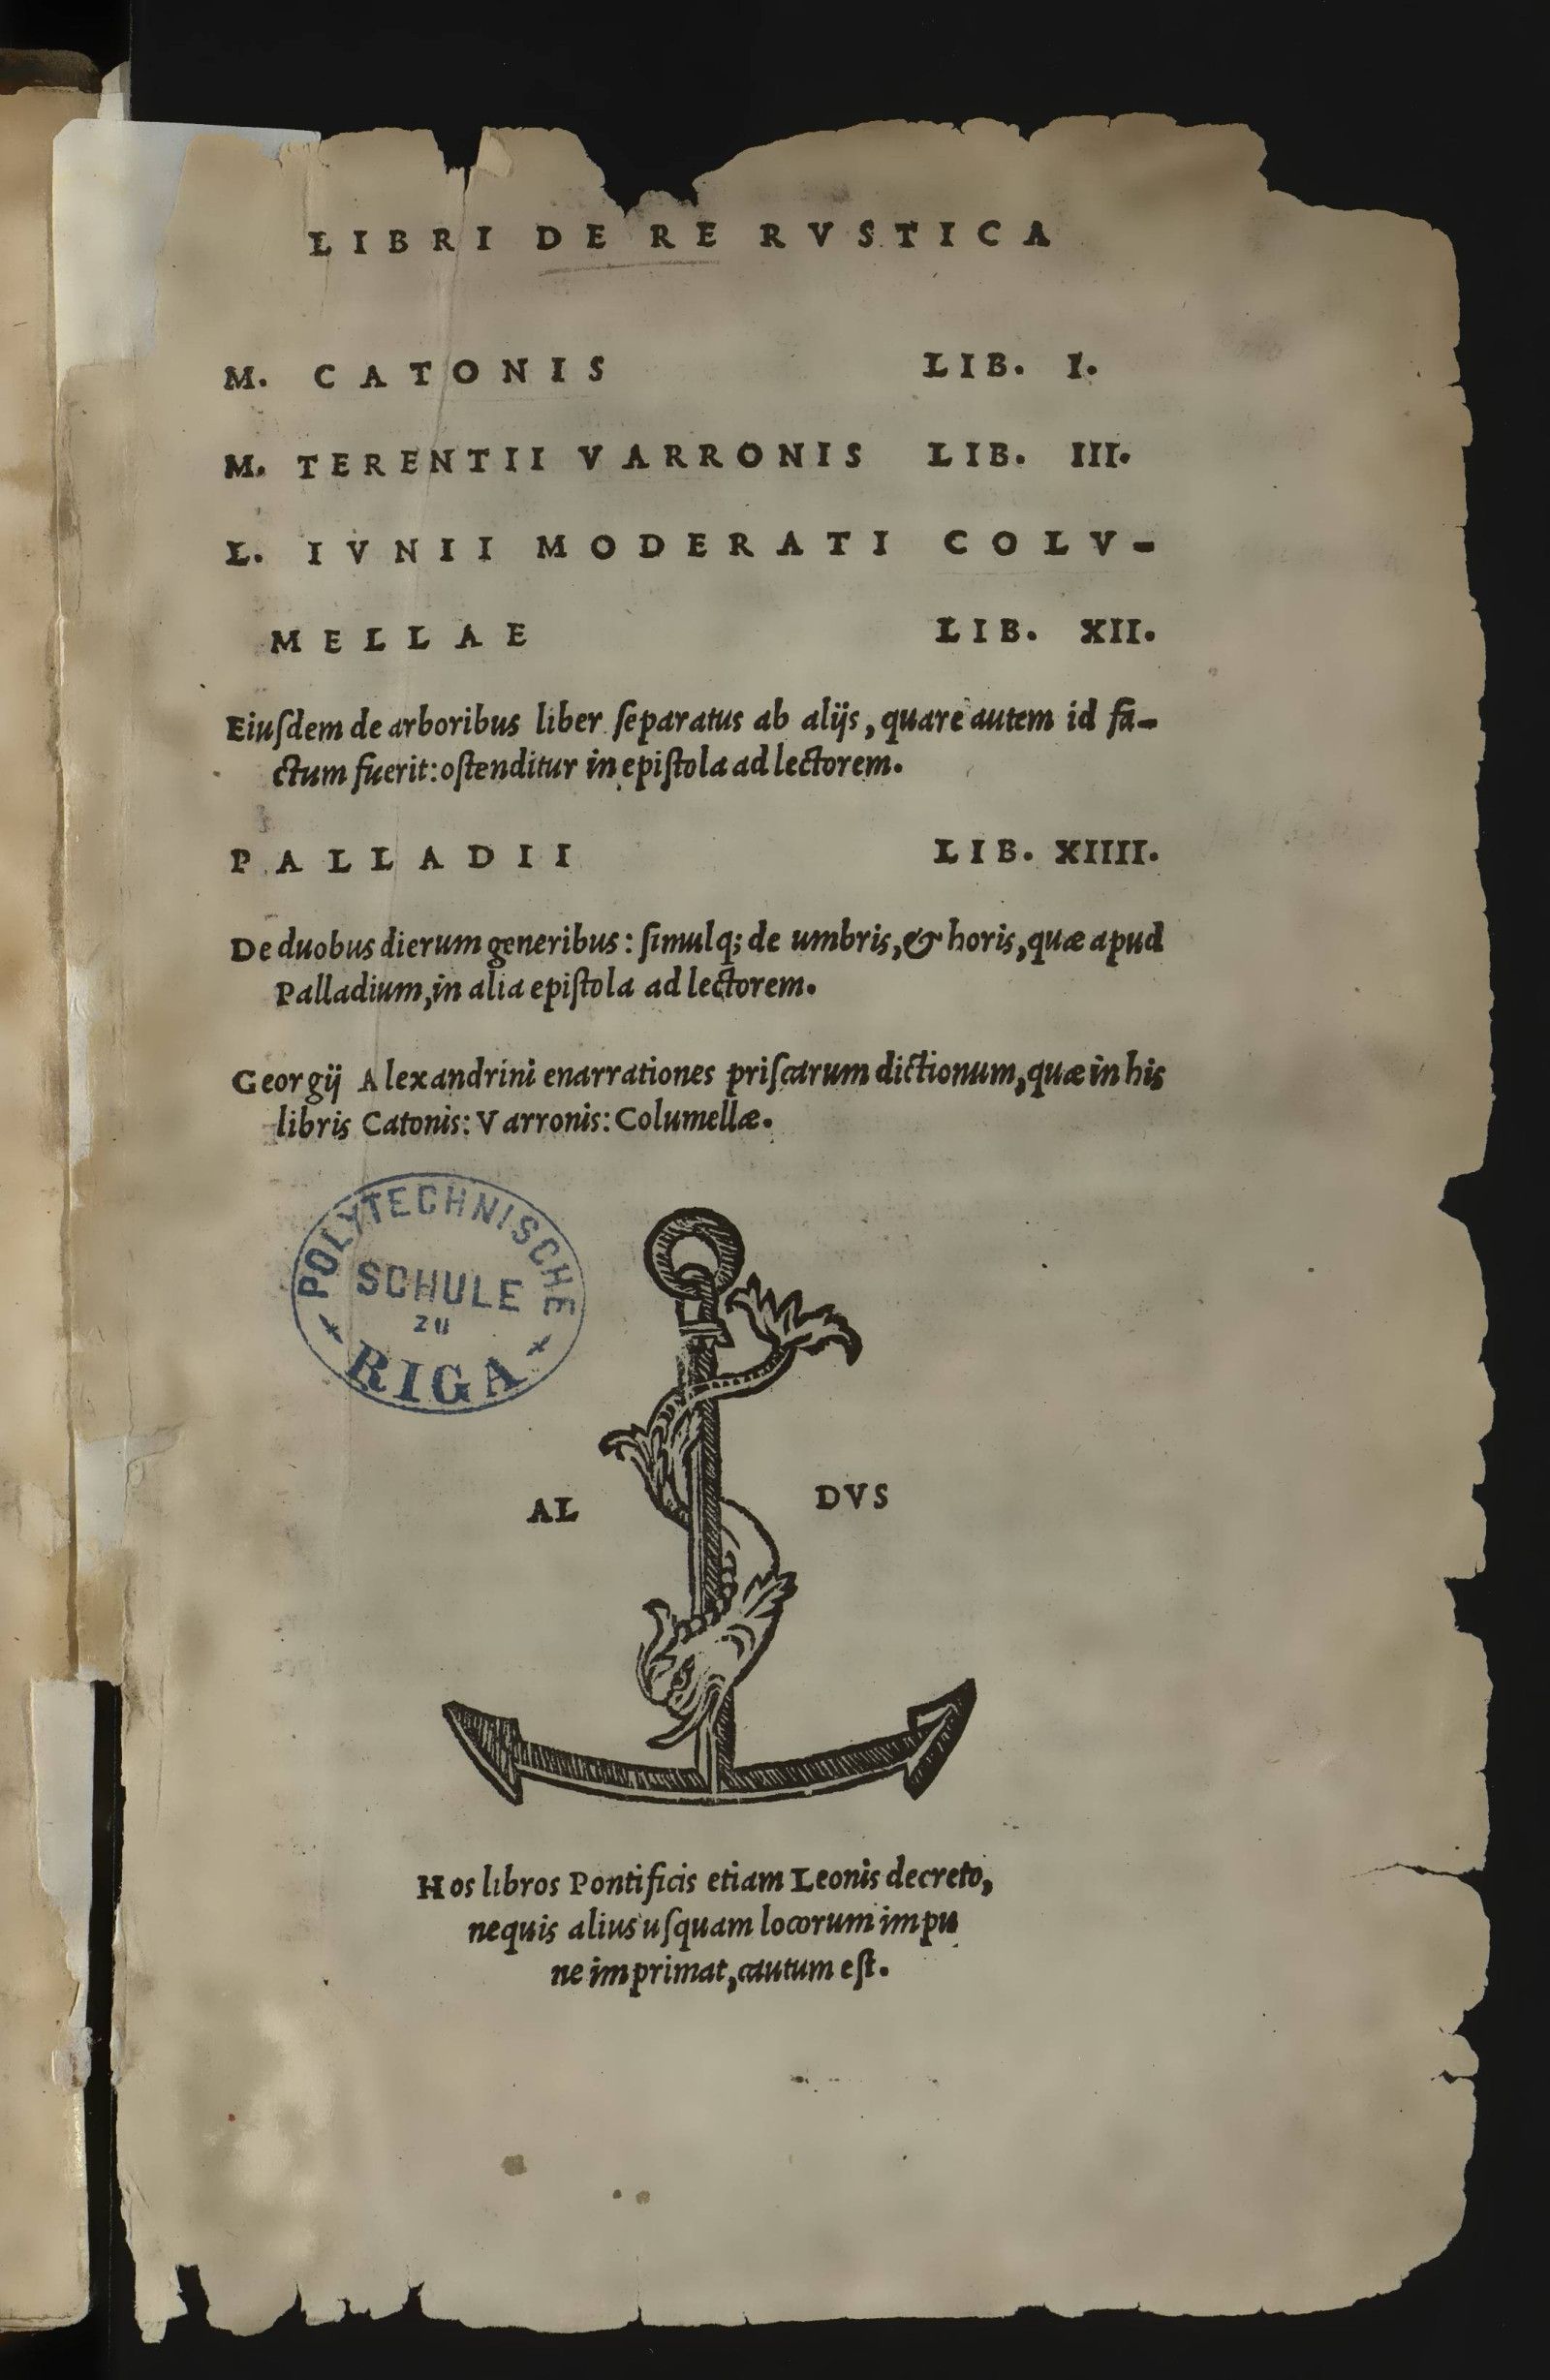 LIBRI DE RE RVSTICA
M. CATONIS LIB. I.
M. TERENTII VARRONIS LIB. III.
L. IVNII MODERATI COLV-
MELLAE LIB. XII.
Eiuſdem de arboribus liber ſeparatus ab alijs, quare autem id fa-
ctum fuerit: oſtenditur in epiſtola ad lectorem.
PALLADII LIB. XIIII.
De duobus dierum generibus: ſimulq; de umbris, & horis, quæ apud
Palladium, in alia epiſtola ad lectorem.
Georgij Alexandrini enarrationes priſcarum dictionum, quæ in his
libris Catonis: Varronis: Columellæ.
POLYTECHNISCHE
SCHULE
ZU
RIGA
AL DVS
Hos libros Pontificis etiam Leonis decreto,
nequis alius uſquam locorum impu
ne imprimat, cautum eſt.